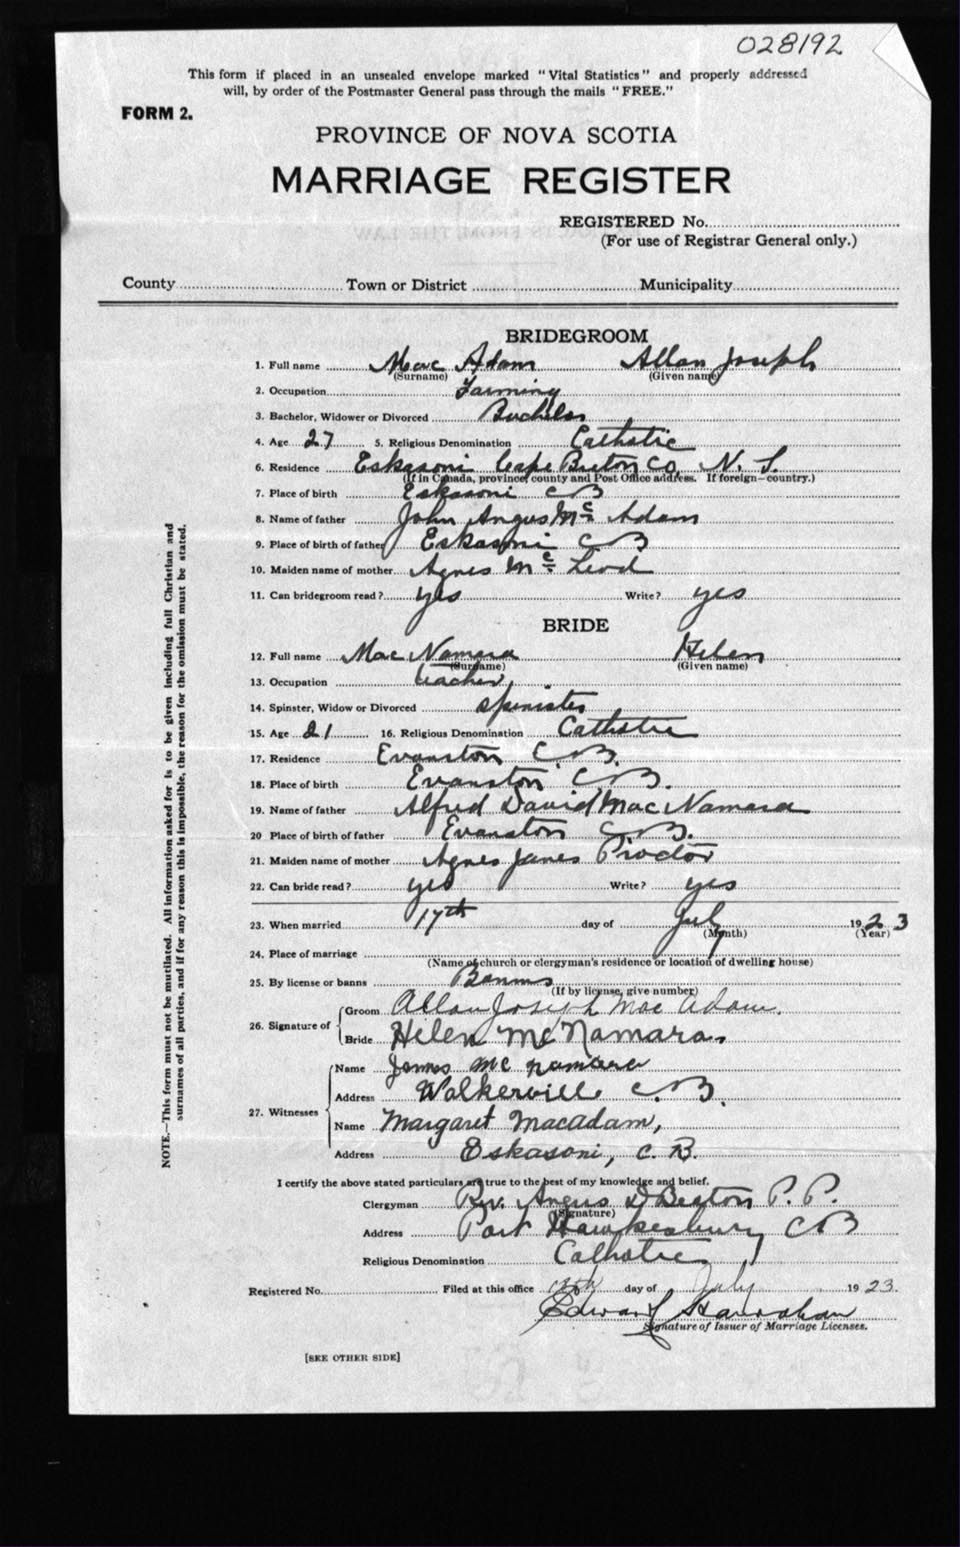 028192
This form if placed in an unsealed envelope marked "Vital Statistics" and properly addressed
will, by order of the Postmaster General pass through the mails "FREE."
FORM 2.
PROVINCE OF NOVA SCOTIA
MARRIAGE REGISTER
REGISTERED No.
(For use of Registrar General only.)
County Town or District Municipality
BRIDEGROOM
1. Full name Mac Adam Allan Joseph
(Surname) (Given name)
2. Occupation Farming
3. Bachelor, Widower or Divorced Bachelor
4. Age 27 5. Religious Denomination Catholic
6. Residence Eskasoni Cape Breton Co. N. S.
(If in Canada, province, county and Post Office address. If foreign—country.)
7. Place of birth Eskasoni CB
8. Name of father John Angus Mc Adam
9. Place of birth of father Eskasoni CB
10. Maiden name of mother Agnes Mc Leod
11. Can bridegroom read? yes Write? yes
BRIDE
12. Full name Mac Namara Helen
(Surname) (Given name)
13. Occupation teacher,
14. Spinster, Widow or Divorced spinister
15. Age 21 16. Religious Denomination Catholic
17. Residence Evanston C B.
18. Place of birth Evanston C B.
19. Name of father Alfred David Mac Namara
20 Place of birth of father Evanston C B.
21. Maiden name of mother Agnes Janes Proctor
22. Can bride read? yes Write? yes
23. When married 17th day of July 1923
(Month) (Year)
24. Place of marriage
(Name of church or clergyman's residence or location of dwelling house)
25. By license or banns Banns
(If by license, give number)
26. Signature of Groom Allan Joseph Mac Adam.
Bride Helen McNamara.
27. Witnesses Name James Mc namara
Address Walkerville C. B.
Name Margaret MacAdam,
Address Eskasoni, C. B.
I certify the above stated particulars are true to the best of my knowledge and belief.
Clergyman Rev. Angus D Beaton P. P.
(Signature)
Address Port Hawkesbury CB
Religious Denomination Catholic
Registered No. Filed at this office day of July 1923.
Edward Hanrahan
Signature of Issuer of Marriage Licenses.
[SEE OTHER SIDE]
NOTE.—This form must not be mutilated. All information asked for is to be given including full Christian and
surnames of all parties, and if for any reason this is impossible, the reason for the omission must be stated.